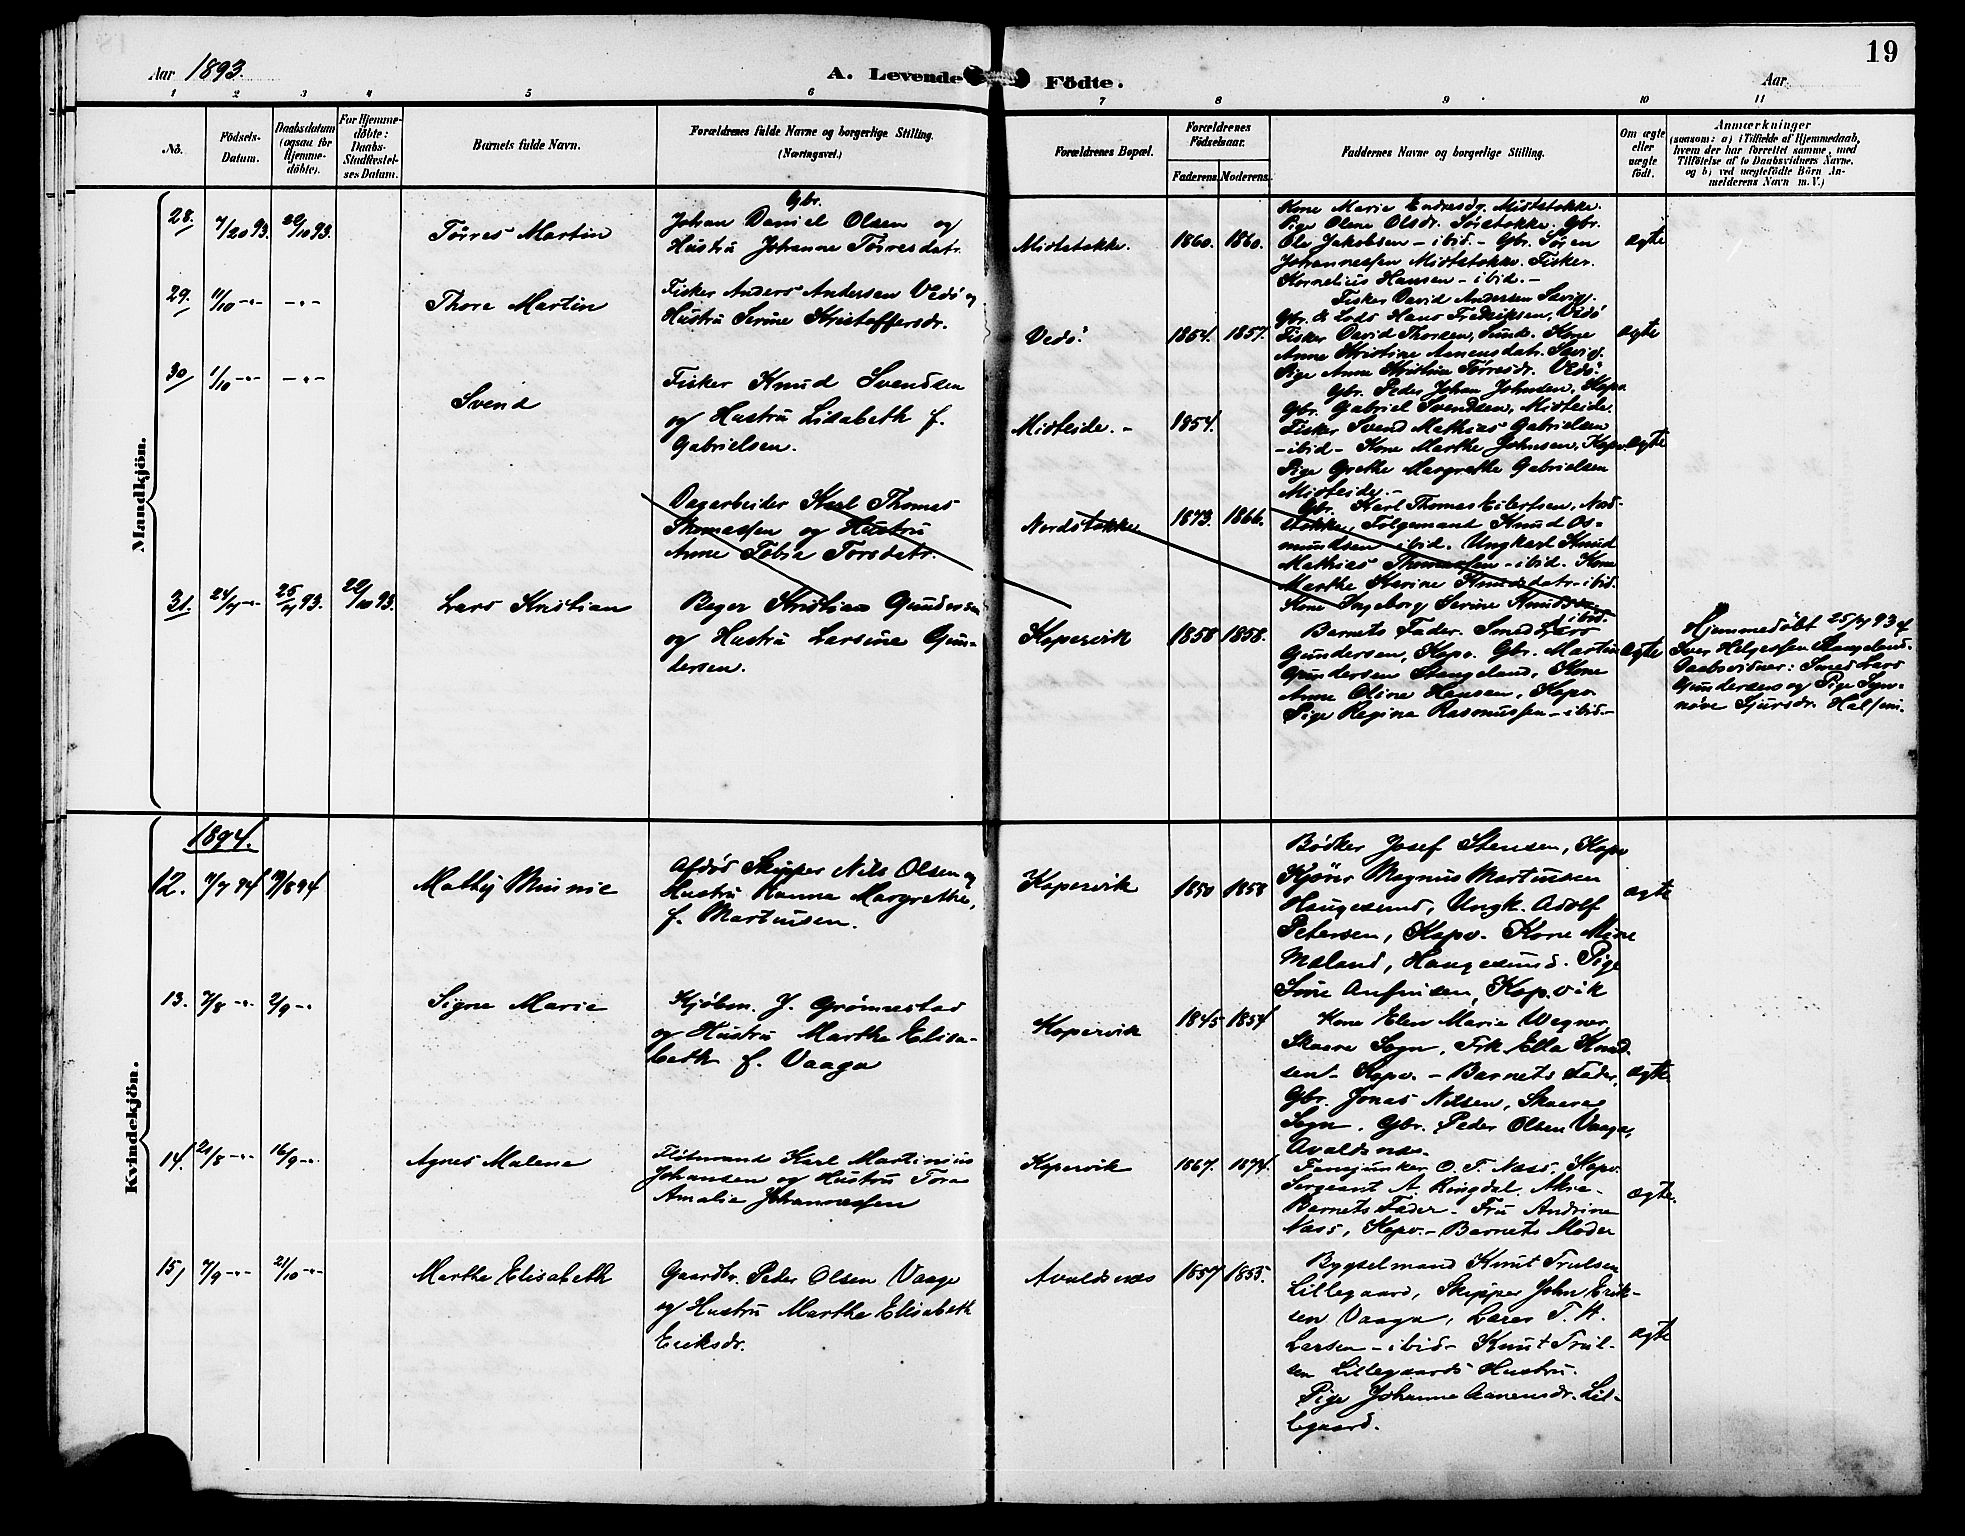 Aar 1893.
A. Levende Födte.
Aar
19
1 2 3 4 5 6 7 8 9 10 11
No.
Födsels-Datum.
Daabsdatum (ogsaa for Hjemme-döbte).
For Hjemme-döbte: Daabs-Stadfæstel-ses Datum.
Barnets fulde Navn.
Forældrenes fulde Navne og borgerlige Stilling. (Næringsvei.)
Forældrenes Bopæl.
Forældrenes Födselsaar.
Faderens. Moderens.
Faddernes Navne og borgerlige Stilling.
Om ægte eller uægte födt.
Anmærkninger
(saasom: a) i Tilfælde af Hjemmedaab,
hvem der har forrettet samme, med
Tilföielse af to Daabsvidners Navne,
og b) ved uægtefödte Börn An-
melderens Navn m. V.)
Mandkjön.
28. 7/20 93. 29/10 93.
Tørres Martin
Gbr.
Johan Daniel Olsen og
Hustru Johanne Tørresdatr.
Midtstokke. 1860. 1860.
Kone Marie Endresdr. Midtstokke.
Pige Olene Olsdr. Sørstokke. Gbr.
Ole Jakobsen - ibid. - Gbr. Søren
Johannessen Midtstokke. Fisker
Kornelius Hansen - ibid. -
ægte
29. 11/10 -"- -"-
Thore Martin
Fisker Anders Andersen Vedö og
Hustru Serine Kristoffersdr.
Vedö. 1854. 1857.
Fisker David Andersen Savig.
Gbr. & Lods Hans Fredriksen, Vedö
Fisker David Thorsen, Sund. Kone
Anne Kristine Aanensdatr. Savig.
Pige Anne Kristina Tørresdr. Vedö
ægte
30/ 1/10 -"- -"-
Svend
Fisker Knud Svendsen
og Hustru Lisabeth f.
Gabrielsen.
Midteide. - 1854.
Gbr. Peder Johan Johnsen, Kopv.
Gbr. Gabriel Svendsen, Midteide.
Fisker Svend Mathias Gabrielsen
- ibid - Kone Marthe Johnsen, Kopv.
Pige Grethe Margrethe Gabrielsen
Midteide. -
ægte
Dagarbeider Karl Thomas
Thomassen og Hustru
Anne Tobia Torsdatr.
Nordstokke 1873. 1866.
Gbr. Karl Thomas Eilertsen, Nord-
stokke, Følgemand Knud Os-
mundsen ibid. Ungkarl Knud
Mathias Thomassen - ibid. Kone
Marthe Karine Knudsdatr - ibid.
Kone Ingeborg Serine
ibid.
31.
Lars Kristian
Bager Kristian Gundersen
og Hustru Larsine Gun-
dersen.
Kopervik 1858 1858.
Barnets Fader. Smed Lars
Gundersen, Kopv. Gbr. Martin
Gundersen Stangeland, Kone
Anne Oline Hansen, Kopv
Pige Regine Rasmussen - ibid. -
ægte
Hjemmedøbt 25/7 93 af
Iver Helgesen Stangeland.
Daabsvidner: Smed Lars
Gundersen og Pige Syn-
növe Sjursdr.
Kvindekjön.
1894.
12. 7/7 94 19/8 94
Mathy Minnie
Afdöd Skipper Nils Olsen og
Hustru Hanna Margrethe,
f. Martinsen.
Kopervik 1850 1858
Bødker Josef Stensen, Kopv
Magnus Martinsen
Haugesund, Ungk. Adolf
Petersen, Kopv. Kone Mine
Mæland, Haugesund. Pige
Sine Anfinsen, Kopvik
ægte
13. 7/8 -"- 2/9 -"-
Signe Marie
Kjøbm. J. Grønnestad
og Hustru Marthe Elisa-
beth f. Vaaga
Kopervik 1845 1854
Kone Elen Marie Wegner
Skaare Sogn, Frk Ella Knud-
sen - Kopv. - Barnets Fader,
Gbr. Jonas Nilsen, Skaare
Sogn, Gbr. Peder Olsen Vaaga,
Avaldsnæs.
ægte
14. 21/8 -"- 16/9 -"-
Agnes Malene
Karl Martinius
Johansen og Hustru Tora
Amalie Johannessen
Kopervik 1867. 1874.
Fanejunker O. T. Næss, Kopv.
Sergeant A. Ringdal.
Barnets Fader - Fru Andrine
Næss, Kopv. - Barnets Moder
ægte.
15, 7/9 -"- 21/10 -"-
Marthe Elisabeth
Gaardbr. Peder Olsen Vaage
og Hustru Marthe Elisabeth
Eriksdr.
Avaldsnæs 1857 1855.
Bygselmand Knut Trulsen
Lillegaard, Skipper John Erik-
sen Vaaga, Lærer T. A.
Larsen - ibid - Knut Trul-
sen Lillegaards Hustru.
Pige Johanne Aanensdr. Lil-
legaard.
ægte